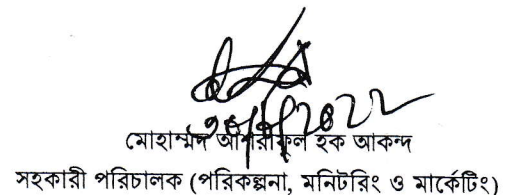 মোহাম্মদ আশরাফুল হক আকন্দ
সহকারী পরিচালক (পরিকল্পনা, মনিটরিং ও মার্কেটিং)